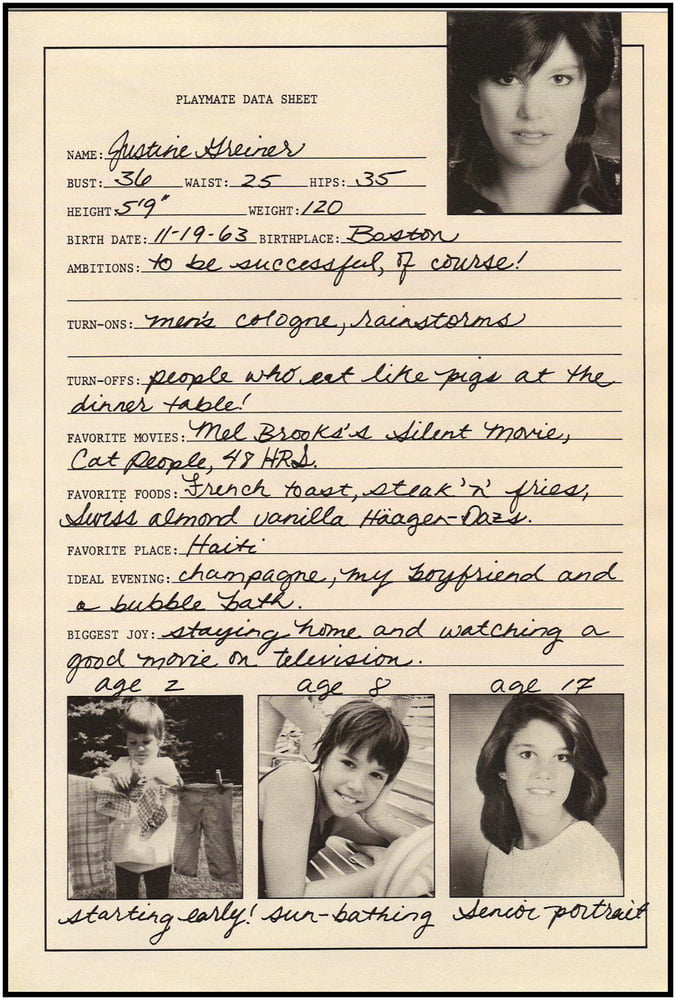 PLAYMATE DATA SHEET
NAME: Justine Greiner
BUST: 36 WAIST: 25 HIPS: 35
HEIGHT: 5'9" WEIGHT: 120
BIRTH DATE: 11-19-63 BIRTHPLACE: Boston
AMBITIONS: to be successful, of course!
TURN-ONS: men's cologne, rainstorms
TURN-OFFS: people who eat like pigs at the
dinner table!
FAVORITE MOVIES: Mel Brooks's Silent Movie,
Cat People, 48 HRS.
FAVORITE FOODS: French toast, steak 'n' fries,
Swiss almond vanilla Häagen-Dazs.
FAVORITE PLACE: Haiti
IDEAL EVENING: champagne, my boyfriend and
a bubble bath.
BIGGEST JOY: staying home and watching a
good movie on television.
age 2 age 8 age 17
starting early! sun-bathing senior portrait